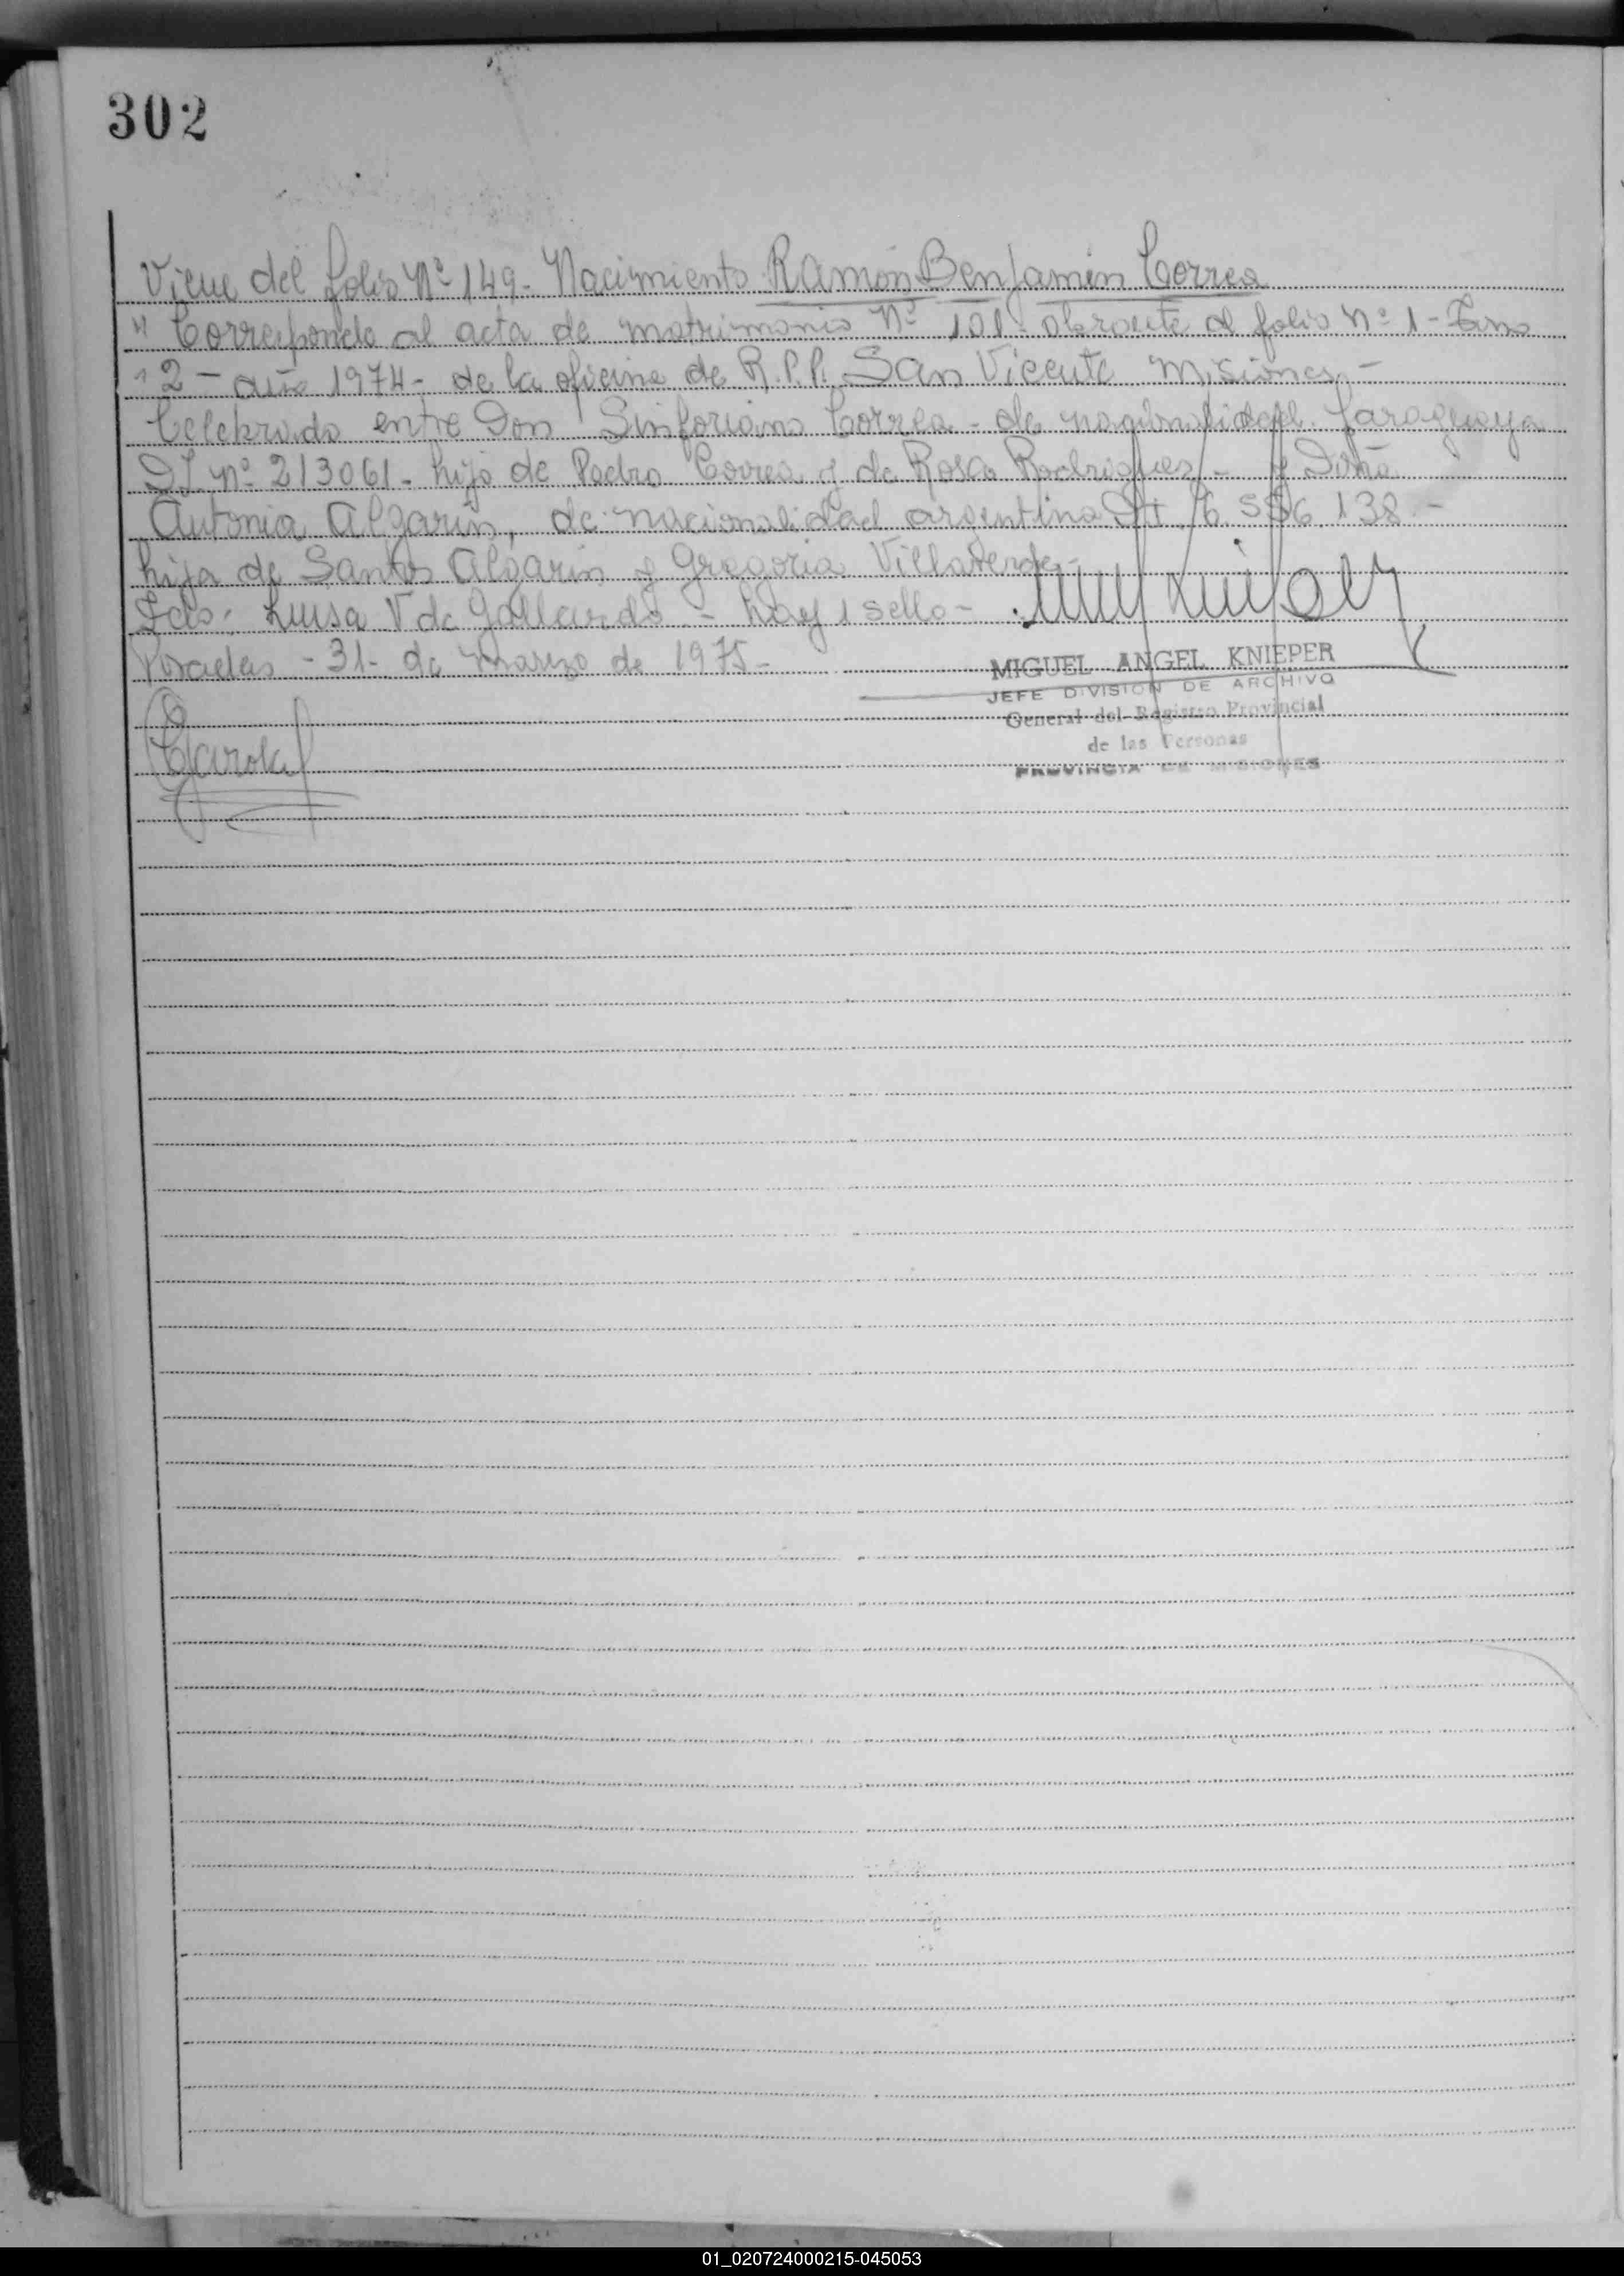 302
Viene del folio Nº 149 - Nacimiento Ramón Benjamín Correa
" Corresponde al acta de matrimonio Nº 101 - obrante al folio nº 1 - Tomo
" 2 - año 1974 - de la oficina de R.P.P. San Vicente Misiones -
Celebrado entre Don Sinforiano Correa - de nacionalidad Paraguaya
DI nº 213061 - hijo de Pedro Correa y de Rosa Rodriguez - y Doña
Antonia Algarin, de nacionalidad argentina 6.556.138 -
hija de Santos Algarin y Gregoria Villaverde -
Fdo: Luisa V de Gallardo - hay 1 sello -
Posadas - 31 - de marzo de 1975 -
MIGUEL ANGEL KNIEPER
JEFE DIVISION DE ARCHIVO
General del Registro Provincial
de las Personas
PROVINCIA DE MISIONES
01_020724000215-045053